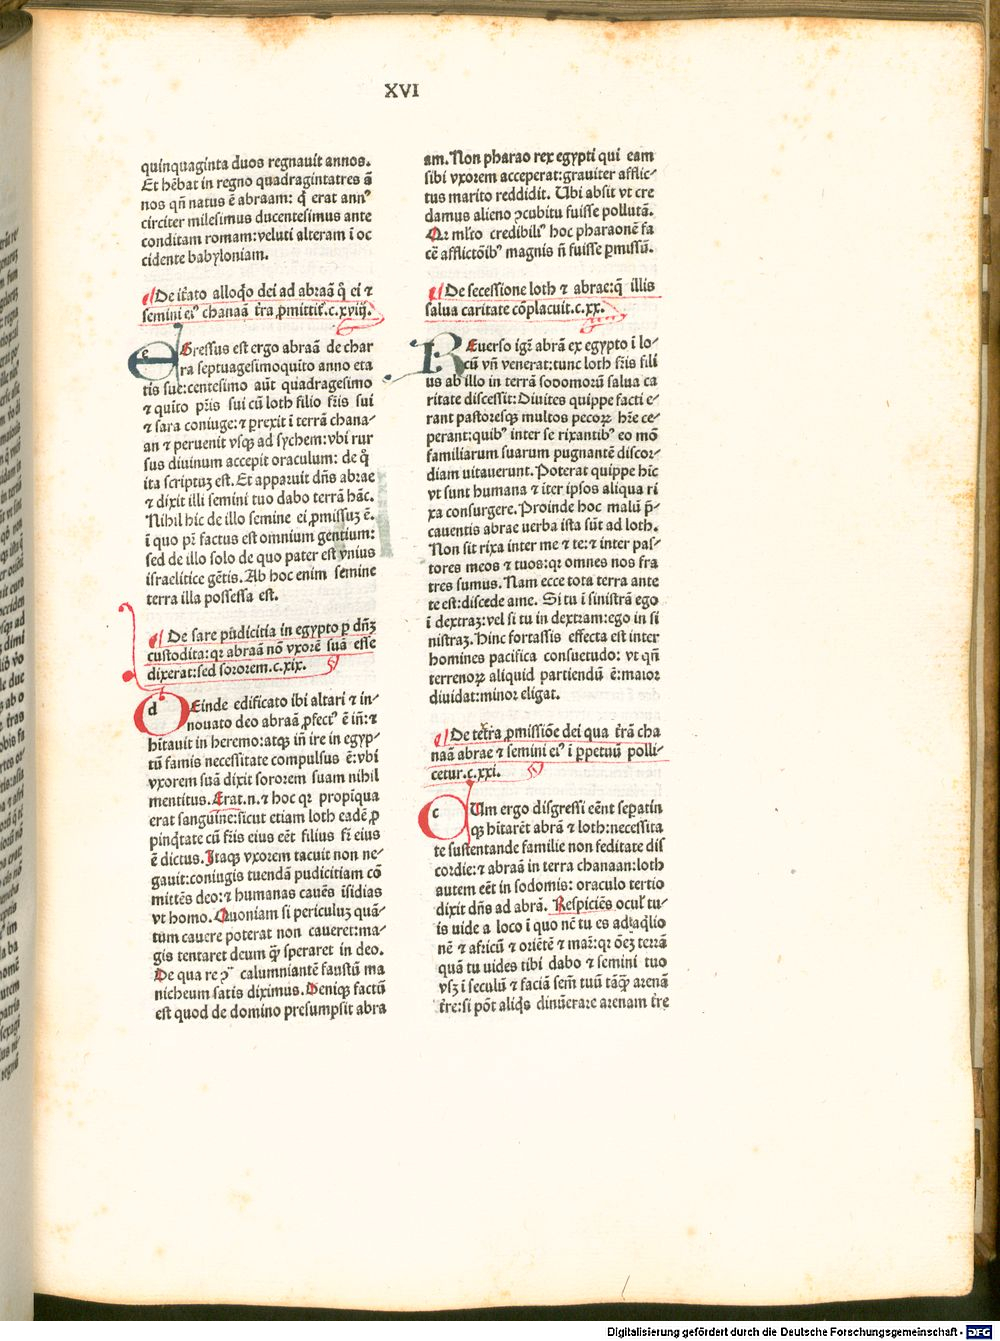 XVI
quinquaginta duos regnauit annos.
Et hēbat in regno quadragintatres ā
nos qn̄ natus ē abraam: q̄ erat annꝰ
circiter milesimus ducentesimus ante
conditam romam: veluti alteram ī oc
cidente babyloniam.
De iťato alloq̇o dei ad abraā q̇ ei ⁊
semini eiꝰ chanaā ťra ꝓmittiť.c.xviij.
e Gressus est ergo abraā de char
ra septuagesimoquīto anno eta
tis sue: centesimo aūt quadragesimo
⁊ quīto pr̄is sui cū loth filio fr̄is sui
⁊ sara coniuge: ⁊ ꝑrexit ī terrā chana⸗
an ⁊ peruenit vsqꝫ ad sychem: vbi rur
sus diuinum accepit oraculum: de q̇
ita scriptuꝫ est. Et apparuit dn̄s abrae
⁊ dixit illi semini tuo dabo terrā hāc.
Nihil hic de illo semine ei ꝓmissuꝫ ē.
ī quo pr̄ factus est omnium gentium:
sed de illo solo de quo pater est vnius
israelitice gētis. Ab hoc enim semine
terra illa possessa est.
De sare pudicitia in egypto ꝑ dn̄ꝫ
custodita: qꝛ abraā nō vxorē suā esse
dixerat: sed sororem.c.xix.
d Einde edificato ibi altari ⁊ in⸗
nouato deo abraā ꝓfectꝰ ē in̄: ⁊
hītauit in heremo: atqꝫ in̄ ire in egyp⸗
tū famis necessitate compulsus ē: vbi
vxorem suā dixit sororem suam nihil
mentitus. Erat.n. ⁊ hoc qꝛ propīqua
erat sanguine: sicut etiam loth eadē ꝓ
pinq̇tate cū fr̄is eius eēt filius fr̄ eius
ē dictus. Itaqꝫ vxorem tacuit non ne⸗
gauit: coniugis tuendā pudicitiam cō
mittēs deo: ⁊ humanas cauēs īsidias
vt homo. Quoniam si periculuꝫ quā⸗
tum cauere poterat non caueret: ma⸗
gis tentaret deum q̄ꝫ speraret in deo.
De qua re ꝯͣ calumniantē faustū ma
nicheum satis diximus. Deniqꝫ factū
est quod de domino presumpsit abra
am. Non pharao rex egypti qui eam
sibi vxorem acceperat: grauiter afflic⸗
tus marito reddidit. Ubi absit vt cre
damus alieno ꝯcubitu fuisse pollutā.
Qꝛ ml̄to credibiliꝰ hoc pharaonē fa
cē afflictōibꝰ magnis n̄ fuisse ꝑmissū.
De secessione loth ⁊ abrae: q̄ illis
salua caritate cōplacuit.c.xx.
R Euerso igr̄ abrā ex egypto ī lo⸗
cū vn̄ venerat: tunc loth fr̄is fili
us ab illo in terrā sodomorū salua ca
ritate discessit: Diuites quippe facti e⸗
rant pastoresqꝫ multos pecoꝝ hr̄e ce⸗
perant: quibꝰ inter se rixantibꝰ eo mō
familiarum suarum pugnantē discor⸗
diam uitauerunt. Poterat quippe hīc
vt sunt humana ⁊ iter ipsos aliqua ri
xa consurgere. Proinde hoc malū p̄⸗
cauentis abrae uerba ista sūt ad loth.
Non sit rixa inter me ⁊ te: ⁊ inter pas⸗
tores meos ⁊ tuos: qꝛ omnes nos fra
tres sumus. Nam ecce tota terra ante
te est: discede ame. Si tu ī sinistrā ego
ī dextraꝫ: vel si tu in dextram: ego in si
nistraꝫ. Hinc fortassis effecta est inter
homines pacifica consuetudo: vt qn̄
terrenoꝝ aliquid partiendū ē: maior
diuidat: minor eligat.
De tetra ꝓmissiōe dei qua ťrā cha
naā abrae ⁊ semini eiꝰ ī ꝑpetuū polli⸗
cetur.c.xxi.
c Um ergo disgressi eēnt seꝑatin
qꝫ hītarēt abrā ⁊ loth: necessita
te sustentande familie non feditate dis
cordie: ⁊ abraā in terra chanaan: loth
autem eēt in sodomis: oraculo tertio
dixit dn̄s ad abrā. Respiciēs ocul̄ tu⸗
is uide a loco ī quo nc̄ tu es ad aq̇lio
nē ⁊ africū ⁊ oriētē ⁊ mar̄: qꝛ ōeꝫ terrā
quā tu uides tibi dabo ⁊ semini tuo
vsꝫ ī seculū ⁊ faciā sem̄ tuū tāqꝫ arenā
ťre: si pōt aliq̇s dinūerare arenam ťre
Digitalisierung gefördert durch die Deutsche Forschungsgemeinschaft - DFG